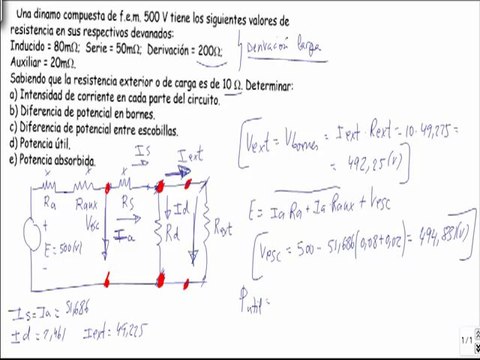 Una dinamo compuesta de f.e.m. 500 V tiene los siguientes valores de
resistencia en sus respectivos devanados:
Inducido = 80mΩ; Serie = 50mΩ; Derivación = 200Ω;
Auxiliar = 20mΩ.
Derivación larga
Sabiendo que la resistencia exterior o de carga es de 10 Ω. Determinar:
a) Intensidad de corriente en cada parte del circuito.
b) Diferencia de potencial en bornes.
c) Diferencia de potencial entre escobillas.
d) Potencia útil.
e) Potencia absorbida.
Vext = Vbornes = Iext · Rext = 10 · 49,225 =
= 492,25 (V)
E = Ia Ra + Ia Raux + Vesc
Vesc = 500 - 51,686 (0,08+0,02) = 494,83 (V)
Putil =
Is
Iext
x x x
Ra Raux Rs
Vesc
Ia
Id
Rd
Rext
+
E = 500 (V)
-
Is = Ia = 51,686
Id = 2,461 Iext = 49,225
1/1